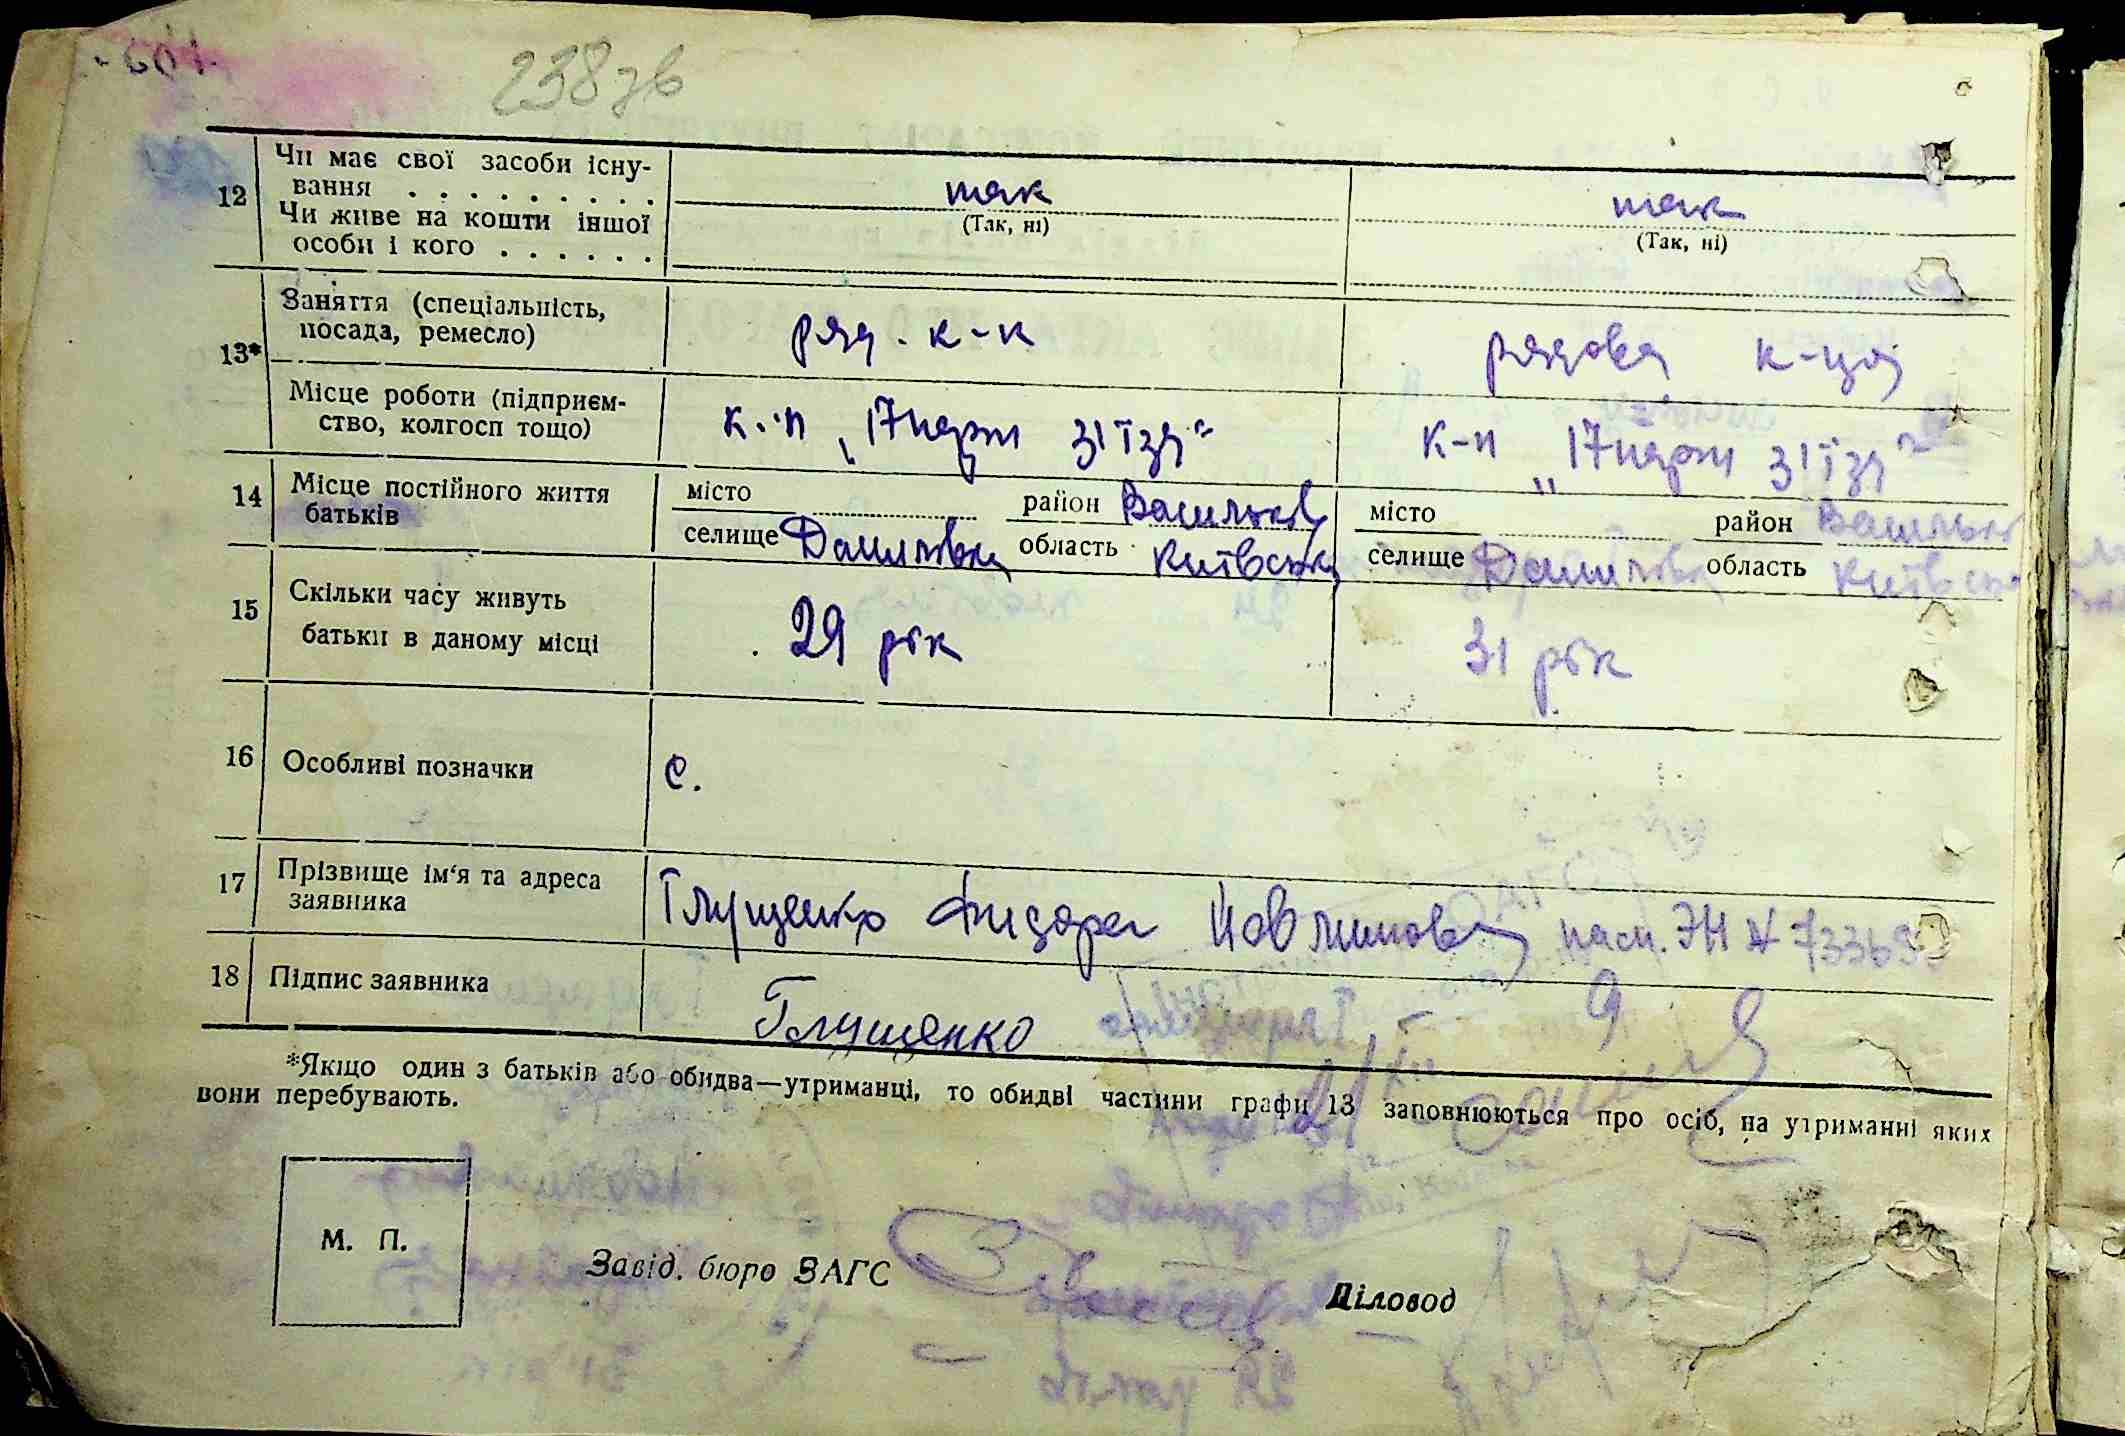 238 зв
12 Чи має свої засоби існу-
вання . . . . . . . . . так так
Чи живе на кошти іншої (Так, ні) (Так, ні)
особи і кого . . . . . .
13* Заняття (спеціальність,
посада, ремесло) ряд. к-к рядова к-ця
Місце роботи (підприєм-
ство, колгосп тощо) к-п „17 парт з'їзд“ к-п „17 парт з'їзд“
14 Місце постійного життя місто район Васильків місто район Васильків
батьків селище Данилівка область Київська селище Данилівка область Київська
15 Скільки часу живуть
батьки в даному місці 29 рік 31 рік
16 Особливі позначки с.
17 Прізвище ім'я та адреса
заявника Глущенко пасп. ЭН №
18 Підпис заявника Глущенко
*Якщо один з батьків або обидва—утриманці, то обидві частини графи 13 заповнюються про осіб, на утриманні яких
вони перебувають.
М. П.
Завід. бюро ЗАГС
Діловод